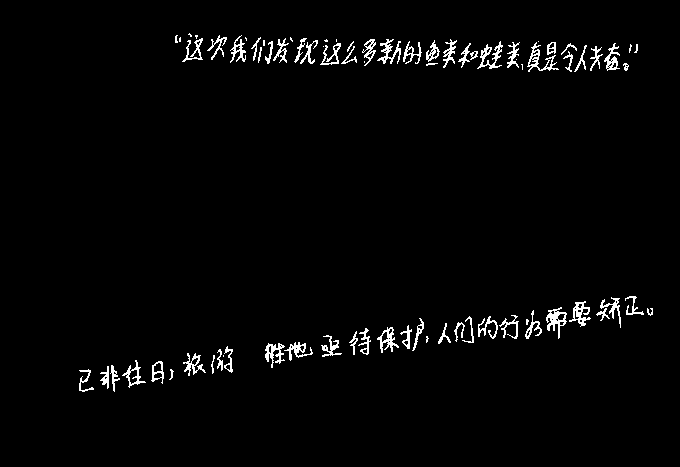 “这次我们发现这么多新的鱼类和蛙类,真是令人惊奇。”
已非往日,旅游 胜地亟待保护,人们的行为需要矫正。